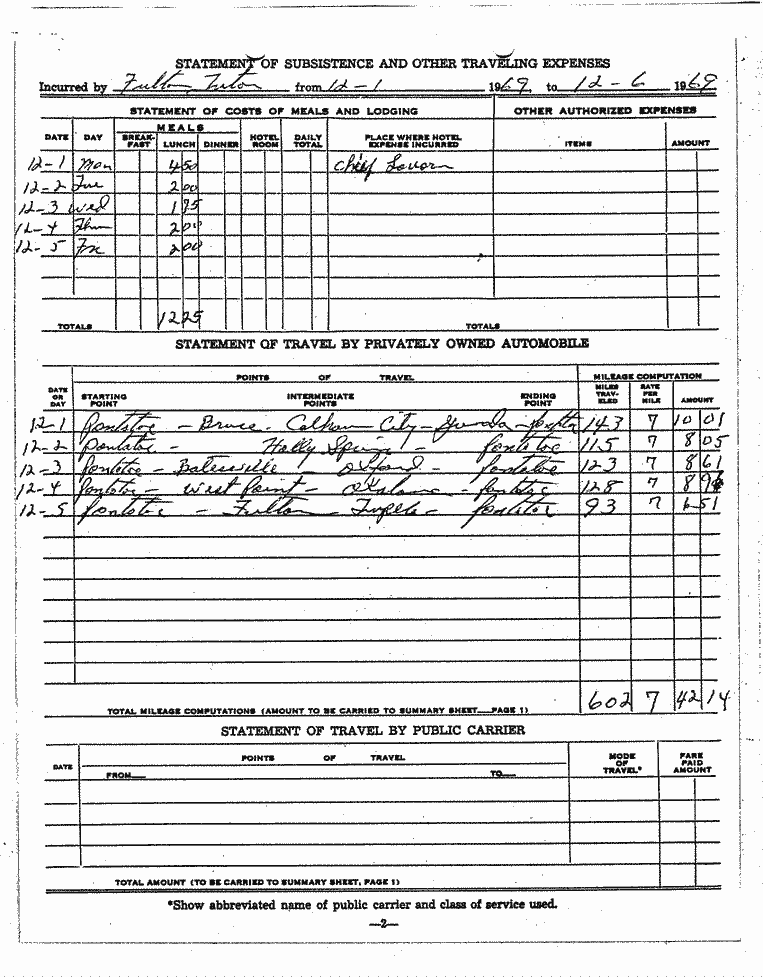 STATEMENT OF SUBSISTENCE AND OTHER TRAVELING EXPENSES
Incurred by Fulton Tutor from 12-1 1969 to 12-6 1969
STATEMENT OF COSTS OF MEALS AND LODGING OTHER AUTHORIZED EXPENSES
DATE DAY MEALS BREAK-FAST LUNCH DINNER HOTEL ROOM DAILY TOTAL PLACE WHERE HOTEL EXPENSE INCURRED ITEMS AMOUNT
12-1 Mon 4 50 Chief
12-2 Tue 2 00
12-3 Wed 1 75
12-4 Thu 2 00
12-5 Fri 2 00
12 25
TOTALS TOTALS
STATEMENT OF TRAVEL BY PRIVATELY OWNED AUTOMOBILE
POINTS OF TRAVEL MILEAGE COMPUTATION
DATE OR DAY STARTING POINT INTERMEDIATE POINTS ENDING POINT MILES TRAV-ELED RATE PER MILE AMOUNT
12-1 Pontotoc - Bruce - Calhoun City - - Pontotoc 143 7 10 01
12-2 Pontotoc - Holly Springs - Pontotoc 115 7 8 05
12-3 Pontotoc - Batesville - Oxford - Pontotoc 123 7 8 61
12-4 Pontotoc - West Point - Okolona - Pontotoc 128 7 8 96
12-5 Pontotoc - Fulton - Tupelo - Pontotoc 93 7 6 51
TOTAL MILEAGE COMPUTATIONS (AMOUNT TO BE CARRIED TO SUMMARY SHEET—PAGE 1) 602 7 42 14
STATEMENT OF TRAVEL BY PUBLIC CARRIER
DATE POINTS OF TRAVEL MODE OF TRAVEL* FARE PAID AMOUNT
FROM— TO—
TOTAL AMOUNT (TO BE CARRIED TO SUMMARY SHEET, PAGE 1)
*Show abbreviated name of public carrier and class of service used.
—2—